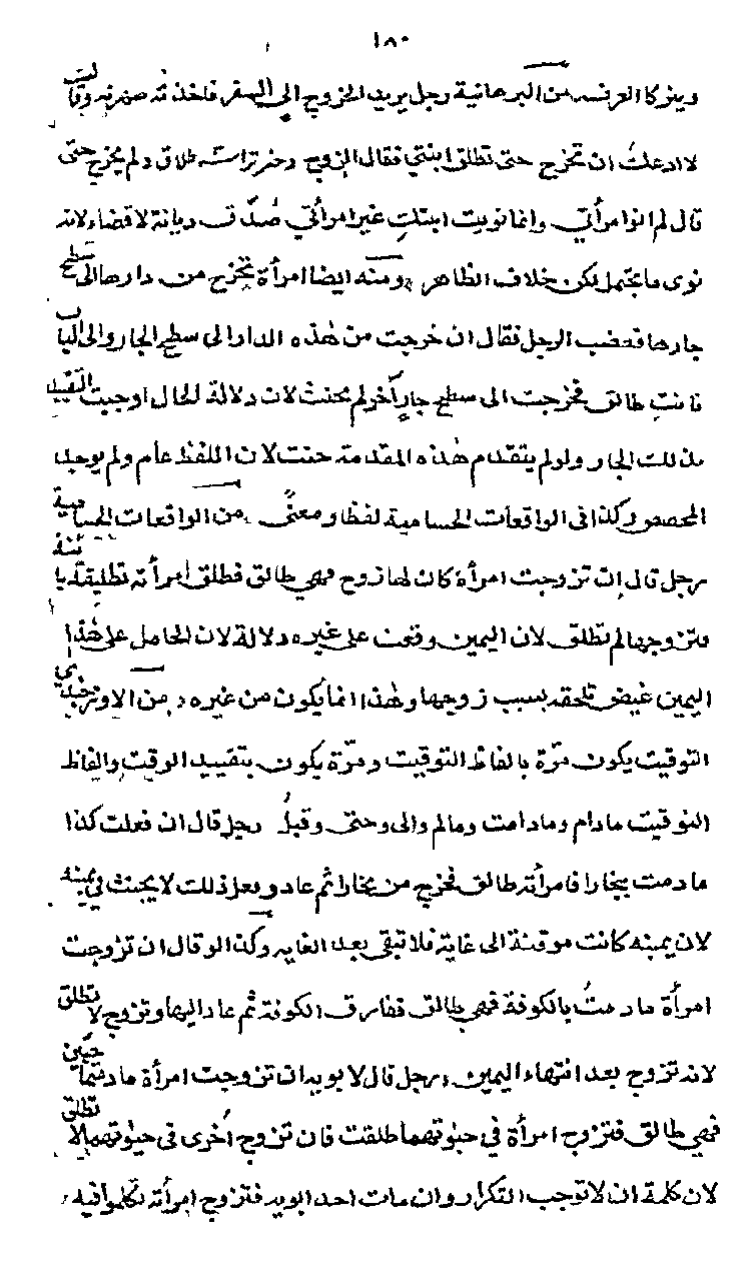 ١٨٠
ويتركا العرفـ من البرهانية رجل يريد الخروج الى السفر فاخذته صهرته وقالت
لا ادعك ان تخرج حتى تطلق ابنتي فقال الزوج دخترتراسه طلاق ولم يخرج حتى
قال لم انو امرأتي وانما نويت ابنتك غير امرأتي صُدّق ديانة لا قضاء لانه
نوى ما يحتمل لكن خلاف الظاهر ومنه ايضا امرأة تخرج من دارها الى سطح
جارها فغضب الرجل فقال ان خرجت من هذه الدار الى سطح الجار والى الباب
فانت طالق فخرجت الى سطح جارٍ آخر لم يحنث لان دلالة الحال اوجبت التقييد
بذلك الجار ولو لم يتقدم هذه المقدمة حنث لان اللفظ عام ولم يوجد
المخصص وكذا في الواقعات الحسامية لفظا ومعنًى من الواقعات الحسامية
رجل قال ان تزوجت امرأة كان لها زوج فهي طالق فطلق امرأته تطليقة بائنة
فتزوجها لم تطلق لان اليمين وقعت على غيره دلالة لان الحامل على هذا
اليمين غيض تلحقه بسبب زوجها وهذا انما يكون من غيره من
التوقيت يكون مرّة بالفاظ التوقيت ومرّة يكون بتقييد الوقت والفاظ
التوقيت مادام ومادامت ومالم والى وحتى وقبلُ رجل قال ان فعلت كذا
ما دمت ببخارا فامرأته طالق فخرج من بخارا ثم عاد وفعل ذلك لا يحنث في يمينه
لان يمينه كانت موقتة الى غاية فلا تبقى بعد الغايه وكذا لو قال ان تزوجت
امرأة ما دمتُ بالكوفة فهي طالق ففارق الكوفة ثم عاد اليها وتزوج لا تطلق
لانه تزوج بعد انتهاء اليمين رجل قال لابويه ان تزوجت امرأة ما دمتما حيّين
فهي طالق فتزوج امرأة في حيوتهما طلقت فان تزوج أخرى في حيوتهما لا تطلق
لان كلمة ان لا توجب التكرار وان مات احد ابويه فتزوج امرأة تكلموا فيه